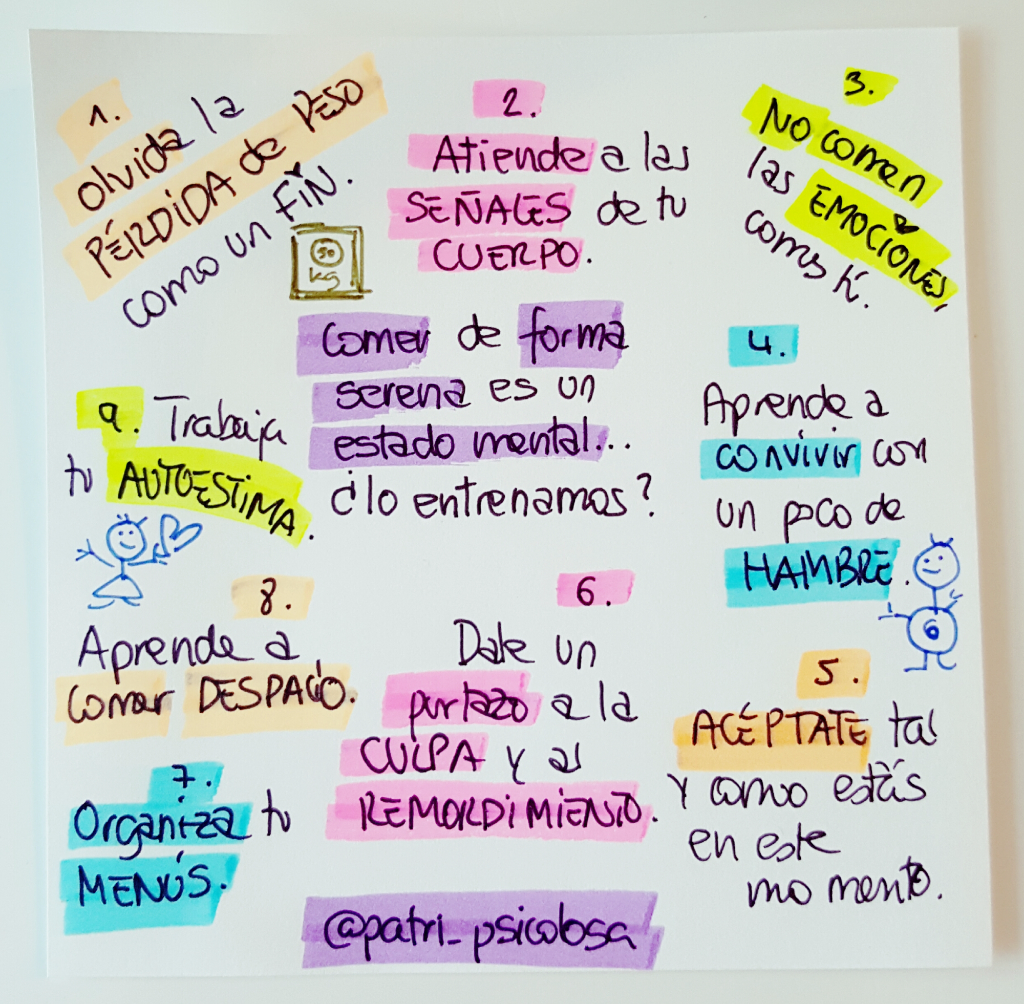 Comer de forma
serena es un
estado mental...
¿lo entrenamos?
1.
Olvida la
PÉRDIDA de PESO
como un FIN.
50
kg
2.
Atiende a las
SEÑALES de tu
CUERPO.
3.
NO comen
las EMOCIONES,
comes tú.
4.
Aprende a
convivir con
un poco de
HAMBRE.
5.
ACÉPTATE tal
y como estás
en este
momento.
6.
Dale un
portazo a la
CULPA y al
REMORDIMIENTO.
7.
Organiza tu
MENÚS.
8.
Aprende a
comer DESPACIO.
9. Trabaja
tu AUTOESTIMA.
@patri_psicologa